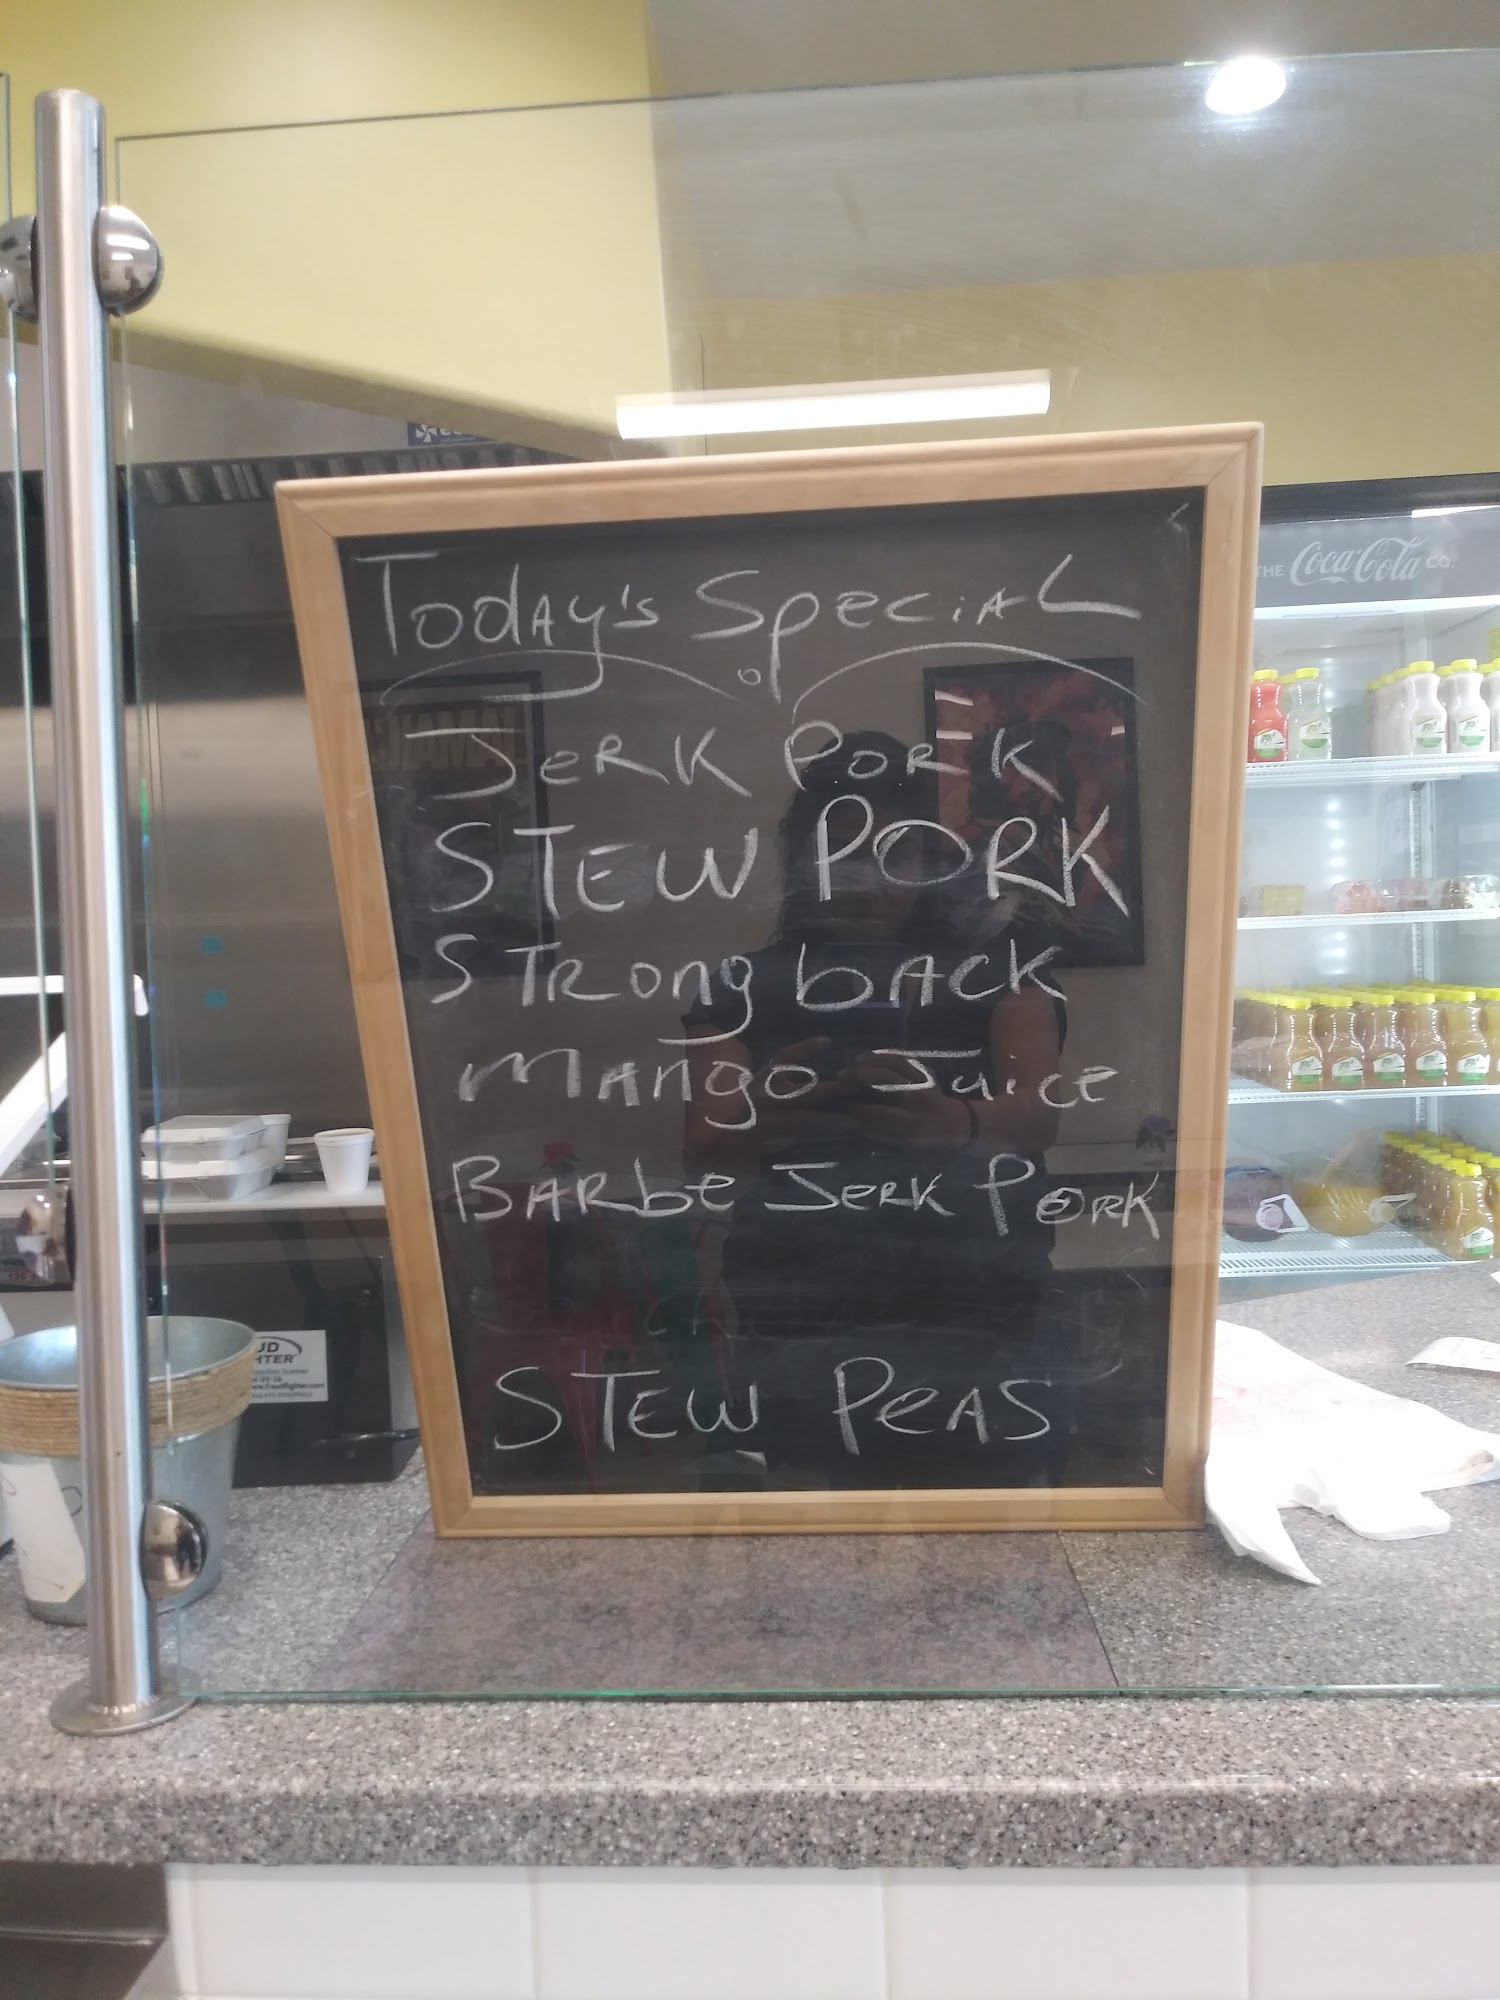 Today's Special
Jerk Pork
STEW PORK
STRong bACK
mAngo Juice
BARbe Jerk Pork
STEW PeAS
THE Coca-Cola CO.